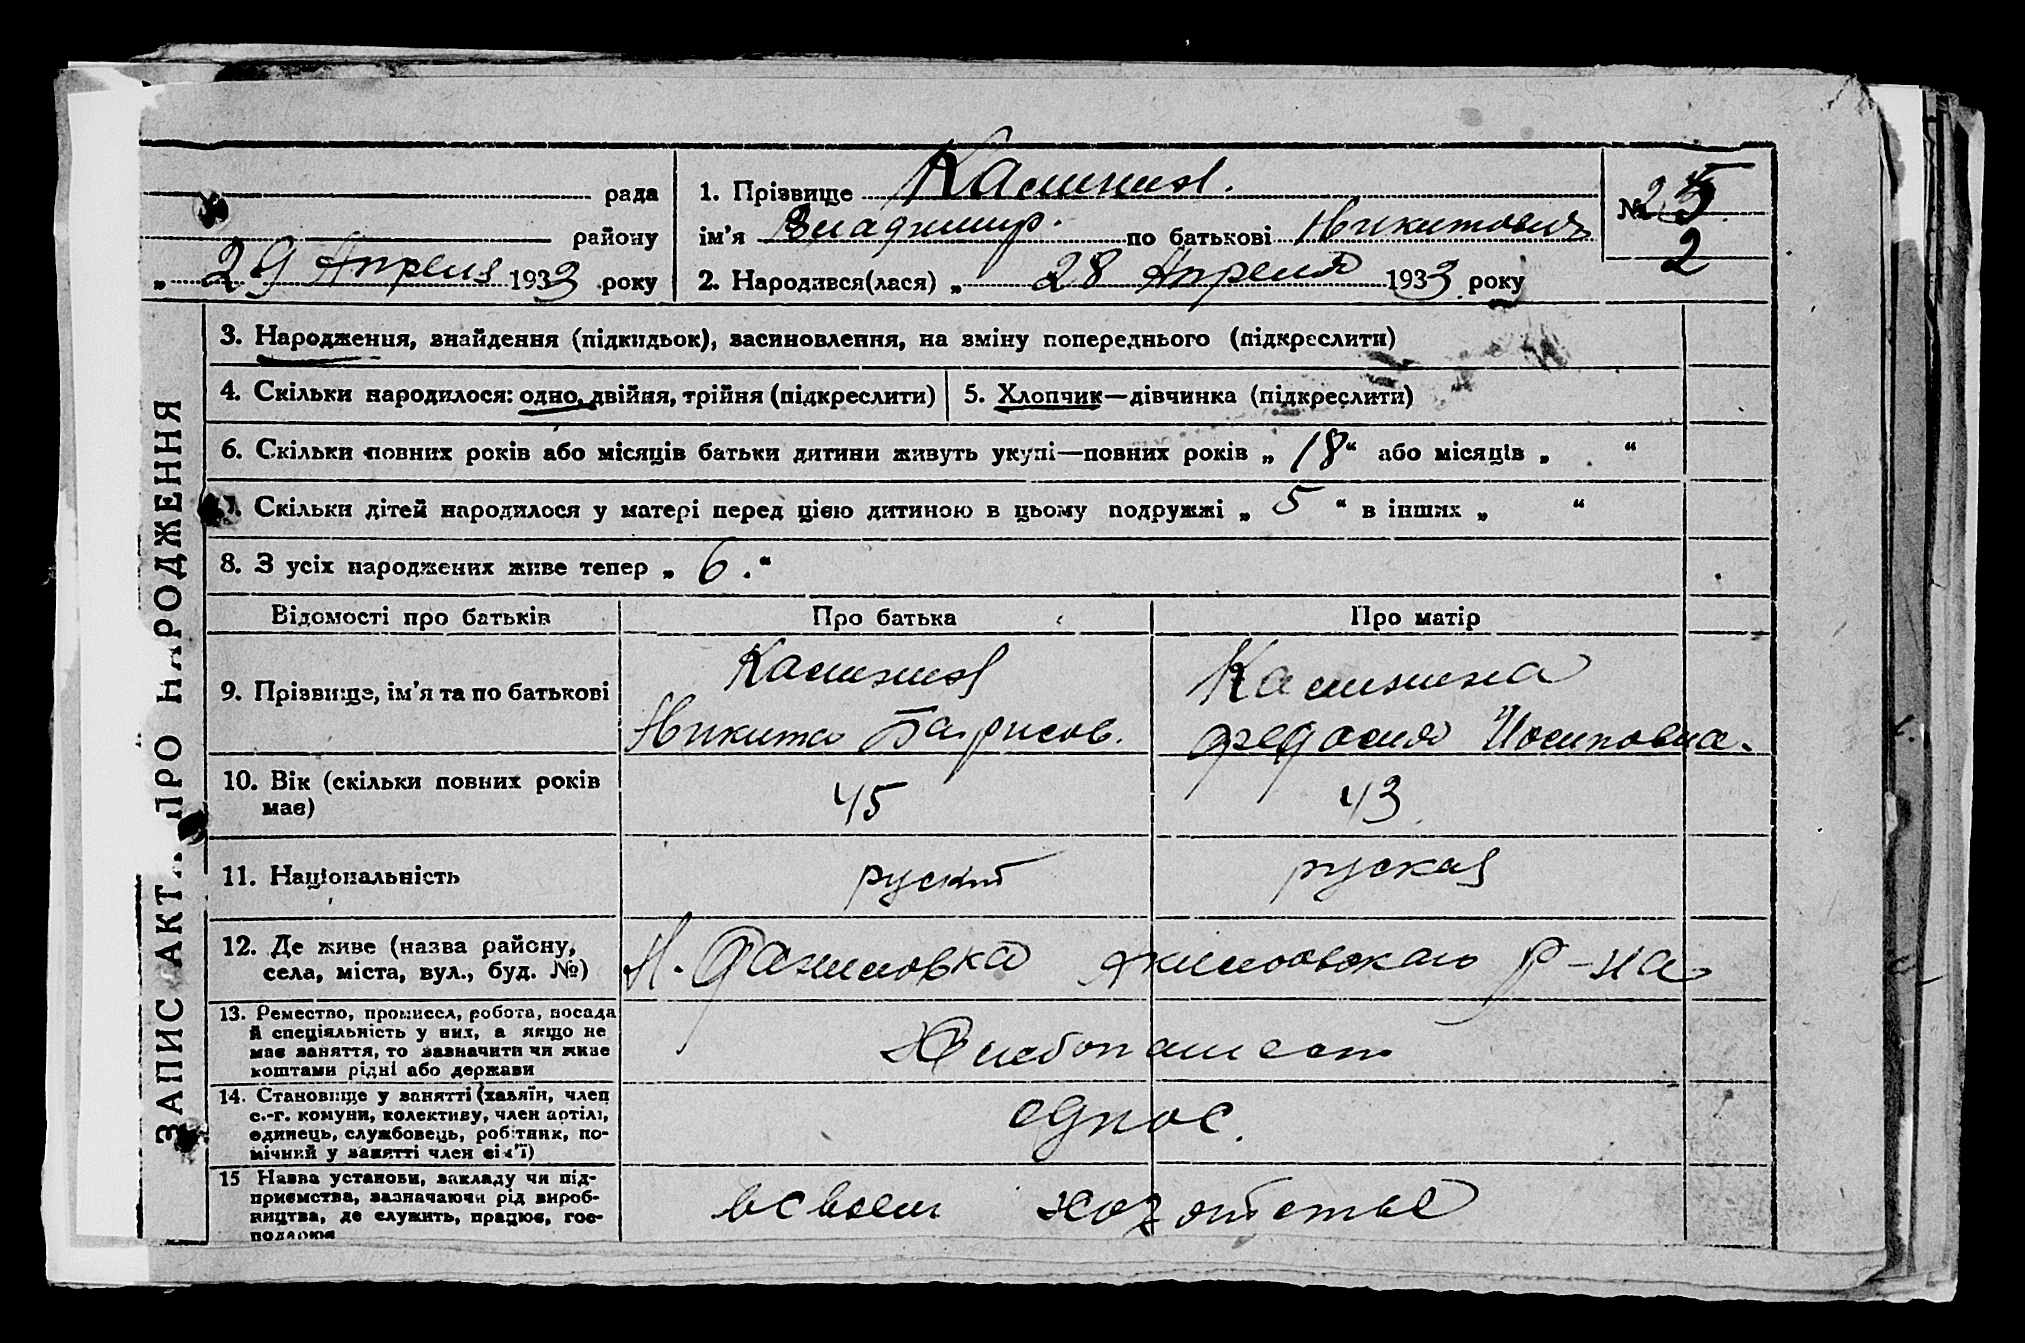 рада
району
„ 29 Апреля 1933 року
1. Прізвище Калинин.
ім'я Владимир. по батькові Никитович
2. Народився(лася) „ 28 Апреля 1933 року
№ 25
2
ЗАПИС АКТ ПРО НАРОДЖЕННЯ
3. Народження, знайдення (підкидьок), засиновлення, на зміну попереднього (підкреслити)
4. Скільки народилося: одно, двійня, трійня (підкреслити)
5. Хлопчик—дівчинка (підкреслити)
6. Скільки повних років або місяців батьки дитини живуть укупі—повних років „ 18 “ або місяців „ “
7. Скільки дітей народилося у матері перед цією дитиною в цьому подружжі „ 5 “ в інших „ “
8. З усіх народжених живе тепер „ 6. “
Відомості про батьків Про батька Про матір
9. Прізвище, ім'я та по батькові
Калинин
Никита Барисов.
Калинина
Федосия Иосиповна.
10. Вік (скільки повних років
має)
45
43
11. Національність
руский
руская
12. Де живе (назва району,
села, міста, вул., буд. №)
Н. Даниловка Якимовскаго р-на
13. Ремество, промисел, робота, посада
й спеціяльність у них, а якщо не
має заняття, то зазначити чи живе
коштами рідні або держави
Хлебопашест
14. Становище у занятті (хазяїн, член
с.-г. комуни, колективу, член артілі,
одинець, службовець, робітник, по-
мічний у занятті член сім'ї)
еднос.
15 Назва установи, закладу чи під-
приємства, зазначаючи рід вироб-
ництва, де служить, працює, гос-
подарює
всвоем хозяйстве